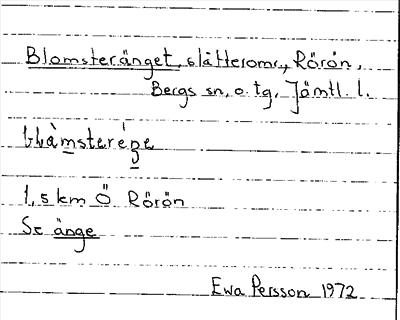 Blomsteränget, slåtteromr., Rörön,
Bergs sn, o. tg, Jämtl. l.
1,5 km Ö Rörön
Se änge
Ewa Persson 1972